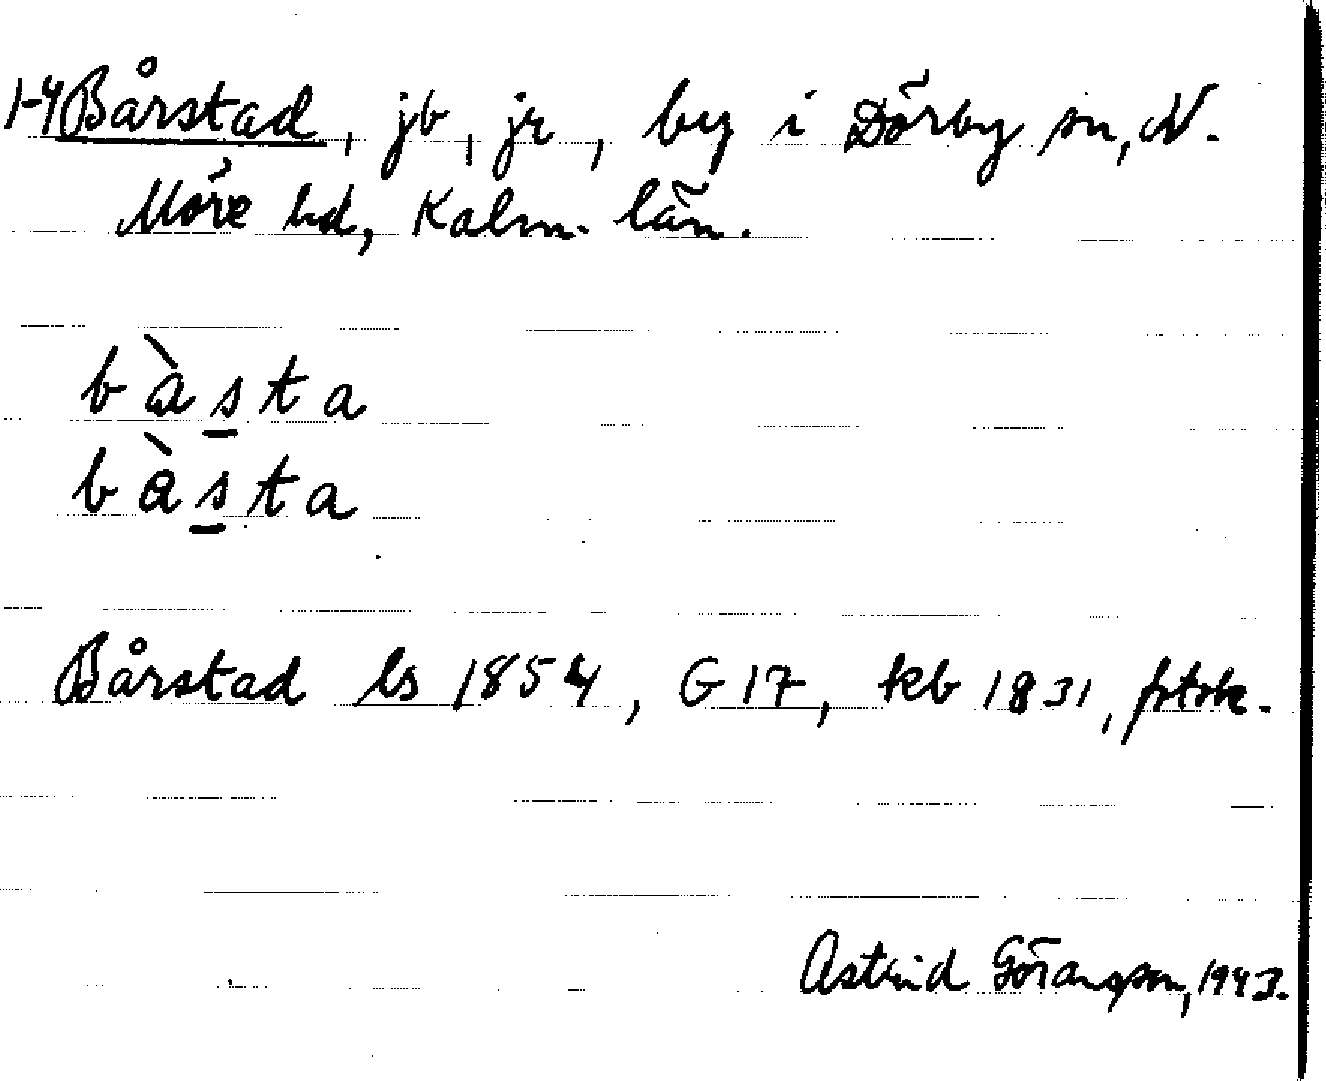 1-4 Bårstad, jb, jr, by i Dörby sn, N.
Möre hd, Kalm. län.
bàs̲ta
bàs̲ta
Bårstad ls 1854, G 17, kb 1831, fstsk.
Astrid Göranson, 1943.